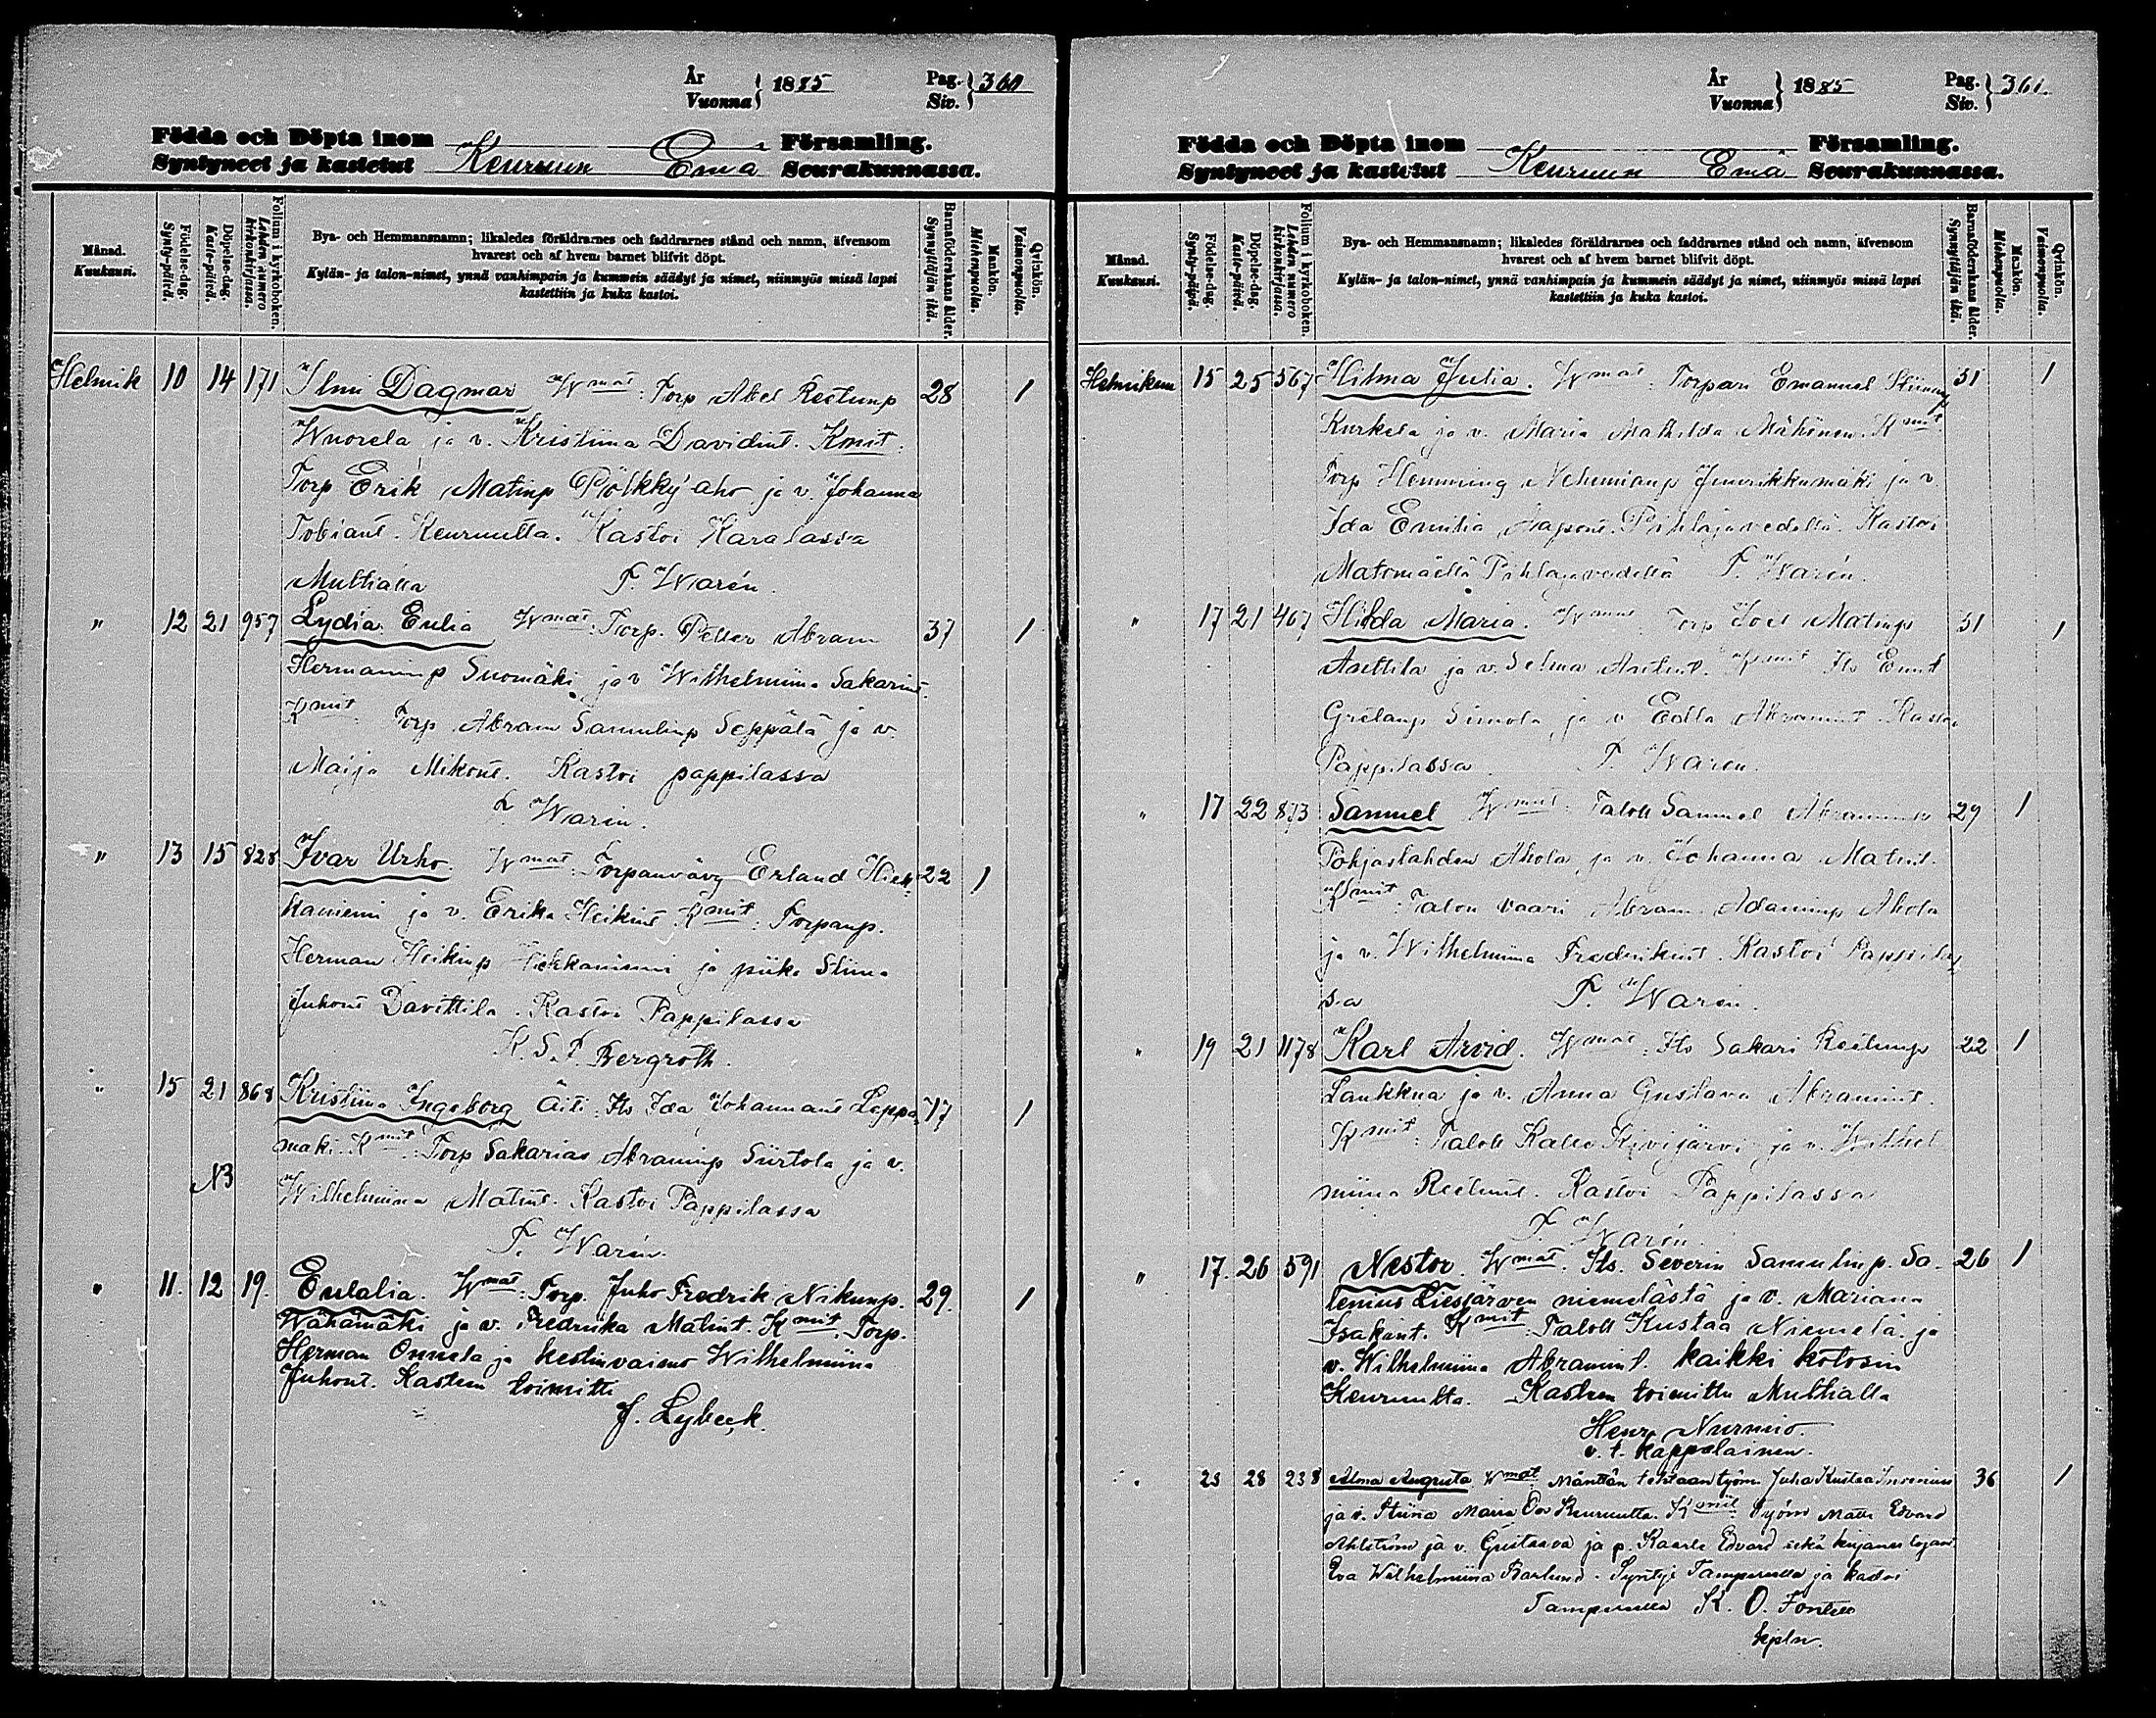 År
Vuonna } 1885 Pag.
Siv. } 360
Födda och Döpta inom Församling.
Syntyneet ja kastetut Keuruun Emä Seurakunnassa.
Månad.
Kuukausi.
Födelse-dag.
Synty-päivä.
Döpelse-dag.
Kaste-päivä.
Folium i kyrkoboken.
Lehden numero kirkonkirjassa.
Bya- och Hemmansnamn; likaledes föräldrarnes och faddrarnes stånd och namn, äfvensom
hvarest och af hvem barnet blifvit döpt.
Kylän- ja talon-nimet, ynnä vanhimpain ja kummein säädyt ja nimet, niinmyös missä lapsi
kastettiin ja kuka kastoi.
Barnaföderskans ålder.
Synnyttäjän ikä.
Mankön.
Miehenpuolia.
Qvinkön.
Vaimonpuolia.
Helmik 10 14 171 Ilmi Dagmar Wmat: Torp Abel Reetunp 28 1
Wuorela ja v. Kristiina Davidint. Kmit:
Torp Erik Matinp Pölkky'aho ja v. Johanna
Tobiant. Keuruulta. Kastoi Karalassa
Multialla F. Warén.
" 12 21 957 Lydia Eulia Wmat: Torp. Petter Abram 37 1
Hermaninp Suomäki ja v Wilhelmiina Sakarint.
Kmit Torp Abram Samulinp Seppälä ja v.
Maija Mikont. Kastoi pappilassa
F. Warén.
" 13 15 828 Ivar Urho. Wmat: Torpanvävy Erland Hiek- 22 1
kaniemi ja v. Erika Heikint Kmit: Torpanp.
Herman Heikinp Hiekkaniemi ja piika Stiina
Juhont Davittila. Kastoi Pappilassa
K. S. F. Bergroth.
" 15 21 868 Kristiina Ingeborg Äiti: Its Ida Johannant Leppä- 17 1
mäki. Kmit: Torp Sakarias Abraminp Siirtola ja v.
NB Wilhelmiina Matint. Kastoi Pappilassa
F. Warén.
" 11. 12 19. Eulalia. Wmat: Torp. Juho Fredrik Nikunp. 29. 1
Wähämäki ja v. Fredrika Matint. Kmit. Torp.
Herman Onnela ja kestinvaimo Wilhelmiina
Juhont. Kasteen toimitti
J. Lybeck.
År
Vuonna } 1885 Pag.
Siv. } 361.
Födda och Döpta inom Församling.
Syntyneet ja kastetut Keuruun Emä Seurakunnassa.
Månad.
Kuukausi.
Födelse-dag.
Synty-päivä.
Döpelse-dag.
Kaste-päivä.
Folium i kyrkoboken.
Lehden numero kirkonkirjassa.
Bya- och Hemmansnamn; likaledes föräldrarnes och faddrarnes stånd och namn, äfvensom
hvarest och af hvem barnet blifvit döpt.
Kylän- ja talon-nimet, ynnä vanhimpain ja kummein säädyt ja nimet, niinmyös missä lapsi
kastettiin ja kuka kastoi.
Barnaföderskans ålder.
Synnyttäjän ikä.
Mankön.
Miehenpuolia.
Qvinkön.
Vaimonpuolia.
Helmikuu 15 25 567 Hilma Julia. Wmat: Torpan Emanuel 31 1
Kurkela ja v. Maria Mathilda Mähönen. Kmit
Torp Hemming Nehemianp Jinrikkumäki ja v.
Ida Emilia Aapont. Pihlajavedeltä. Kastoi
Matomäellä Pihlajavedellä F. Warén.
" 17 21 467 Hilda Maria. Wmat Torp Joel Matinp 31 1
Anttila ja v. Selma Antint. Kmit Its
Simola ja v Edla Abramint Kastoi
Pappilassa F. Warén.
" 17 22 873 Samuel Wmat: Taloll Samuel Abraminp 29 1
Pohjaslahden Ahola ja v. Johanna Matint.
Kmit: Talon vaari Abram Adaminp Ahola
ja v. Wilhelmiina Fredrikint. Kastoi Pappilas
sa F. Warén.
" 19 21 1178 Karl Arvid. Wmat: Its Sakari Reetunp 22 1
Laukkua ja v. Anna Gustava Abramint.
Kmit: Taloll Kalle Kivijärvi ja v. Wilhel
miina Reetunt. Kastoi Pappilassa
F. Warén.
" 17. 26 591 Nestor. Wmat. Its. Severin Samulinp. Sa- 26 1
lenius Liesjärven niemelästä ja v. Mariana
Isakint. Kmit: Taloll Kustaa Niemelä. ja
v. Wilhelmiina Abramint. kaikki kotosin
Keuruulta. Kasteen toimitti Multialla
Henr. Nurmio.
v. t. kappalainen.
" 23 28 238 Alma Augusta Wmat Mäntän tehtaan työm. Juha Kustaa 36 1
ja v. Stiina Maria Keuruulta. Kmit Työm Matti Edvard
Ahlström ja v. Gustaava ja p. Kaarle Edvard sekä
Eva Wilhelmiina. Syntyi Tampereella ja kastoi
Tampereella K. O. Fontell
kpln.